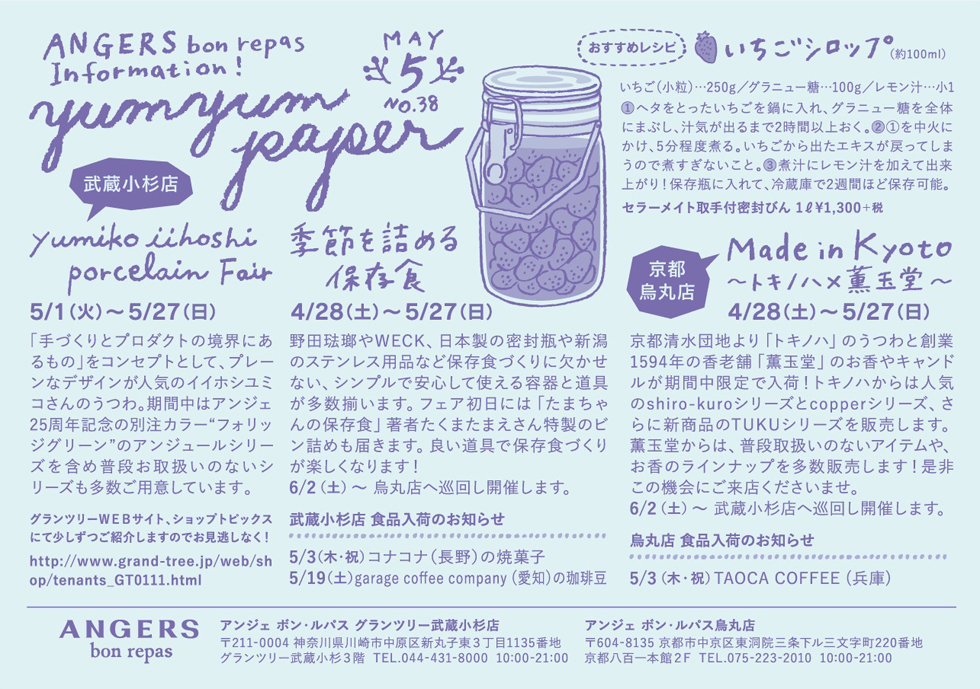 ANGERS bon repas
Information!
yumyum
paper
MAY
5
No.38
おすすめレシピ
いちごシロップ(約100ml)
いちご(小粒)…250g／グラニュー糖…100g／レモン汁…小1
①ヘタをとったいちごを鍋に入れ、グラニュー糖を全体
にまぶし、汁気が出るまで2時間以上おく。②①を中火に
かけ、5分程度煮る。いちごから出たエキスが戻ってしま
うので煮すぎないこと。③煮汁にレモン汁を加えて出来
上がり！保存瓶に入れて、冷蔵庫で2週間ほど保存可能。
セラーメイト取手付密封びん 1ℓ¥1,300+税
武蔵小杉店
yumiko iihoshi
porcelain Fair
5/1(火)〜5/27(日)
「手づくりとプロダクトの境界にあ
るもの」をコンセプトとして、プレー
ンなデザインが人気のイイホシユミ
コさんのうつわ。期間中はアンジェ
25周年記念の別注カラー“フォリッ
ジグリーン”のアンジュールシリー
ズを含め普段お取扱いのないシ
リーズも多数ご用意しています。
グランツリーWEBサイト、ショップトピックス
にて少しずつご紹介しますのでお見逃しなく！
http://www.grand-tree.jp/web/sh
op/tenants_GT0111.html
季節を詰める
保存食
4/28(土)〜5/27(日)
野田琺瑯やWECK、日本製の密封瓶や新潟
のステンレス用品など保存食づくりに欠かせ
ない、シンプルで安心して使える容器と道具
が多数揃います。フェア初日には「たまちゃ
んの保存食」著者たくまたまえさん特製のビ
ン詰めも届きます。良い道具で保存食づくり
が楽しくなります！
6/2（土）〜 烏丸店へ巡回し開催します。
武蔵小杉店 食品入荷のお知らせ
5/3(木・祝)コナコナ(長野)の焼菓子
5/19(土)garage coffee company (愛知)の珈琲豆
京都
烏丸店
Made in Kyoto
〜トキノハ×薫玉堂〜
4/28(土)〜5/27(日)
京都清水団地より「トキノハ」のうつわと創業
1594年の香老舗「薫玉堂」のお香やキャンド
ルが期間中限定で入荷！トキノハからは人気
のshiro-kuroシリーズとcopperシリーズ、さ
らに新商品のTUKUシリーズを販売します。
薫玉堂からは、普段取扱いのないアイテムや、
お香のラインナップを多数販売します！是非
この機会にご来店くださいませ。
6/2（土）〜 武蔵小杉店へ巡回し開催します。
烏丸店 食品入荷のお知らせ
5/3(木・祝)TAOCA COFFEE (兵庫)
ANGERS
bon repas
アンジェ ボン・ルパス グランツリー武蔵小杉店
〒211-0004 神奈川県川崎市中原区新丸子東３丁目1135番地
グランツリー武蔵小杉３階 TEL.044-431-8000 10:00-21:00
アンジェ ボン・ルパス烏丸店
〒604-8135 京都市中京区東洞院三条下ル三文字町220番地
京都八百一本館２F TEL.075-223-2010 10:00-21:00